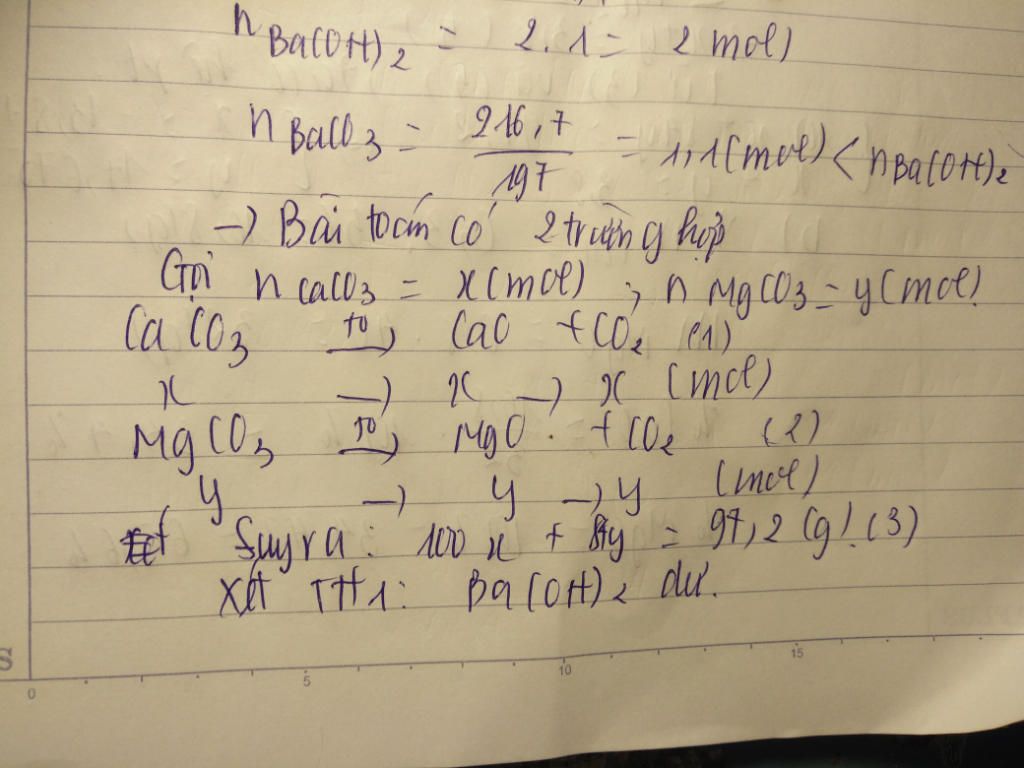 n Ba(OH)2 = 2.1 = 2 mol)
n BaCO3 = 216,7 / 197 = 1,1(mol) < n Ba(OH)2
→ Bài toán có 2 trường hợp
Gọi n CaCO3 = x(mol) ; n MgCO3 = y(mol)
CaCO3 t0→ CaO + CO2 (1)
x → x → x (mol)
MgCO3 t0→ MgO + CO2 (2)
y → y → y (mol)
Suy ra: 100x + 84y = 97,2 (g) (3)
Xét TH1: Ba(OH)2 dư.
S
0 5 10 15